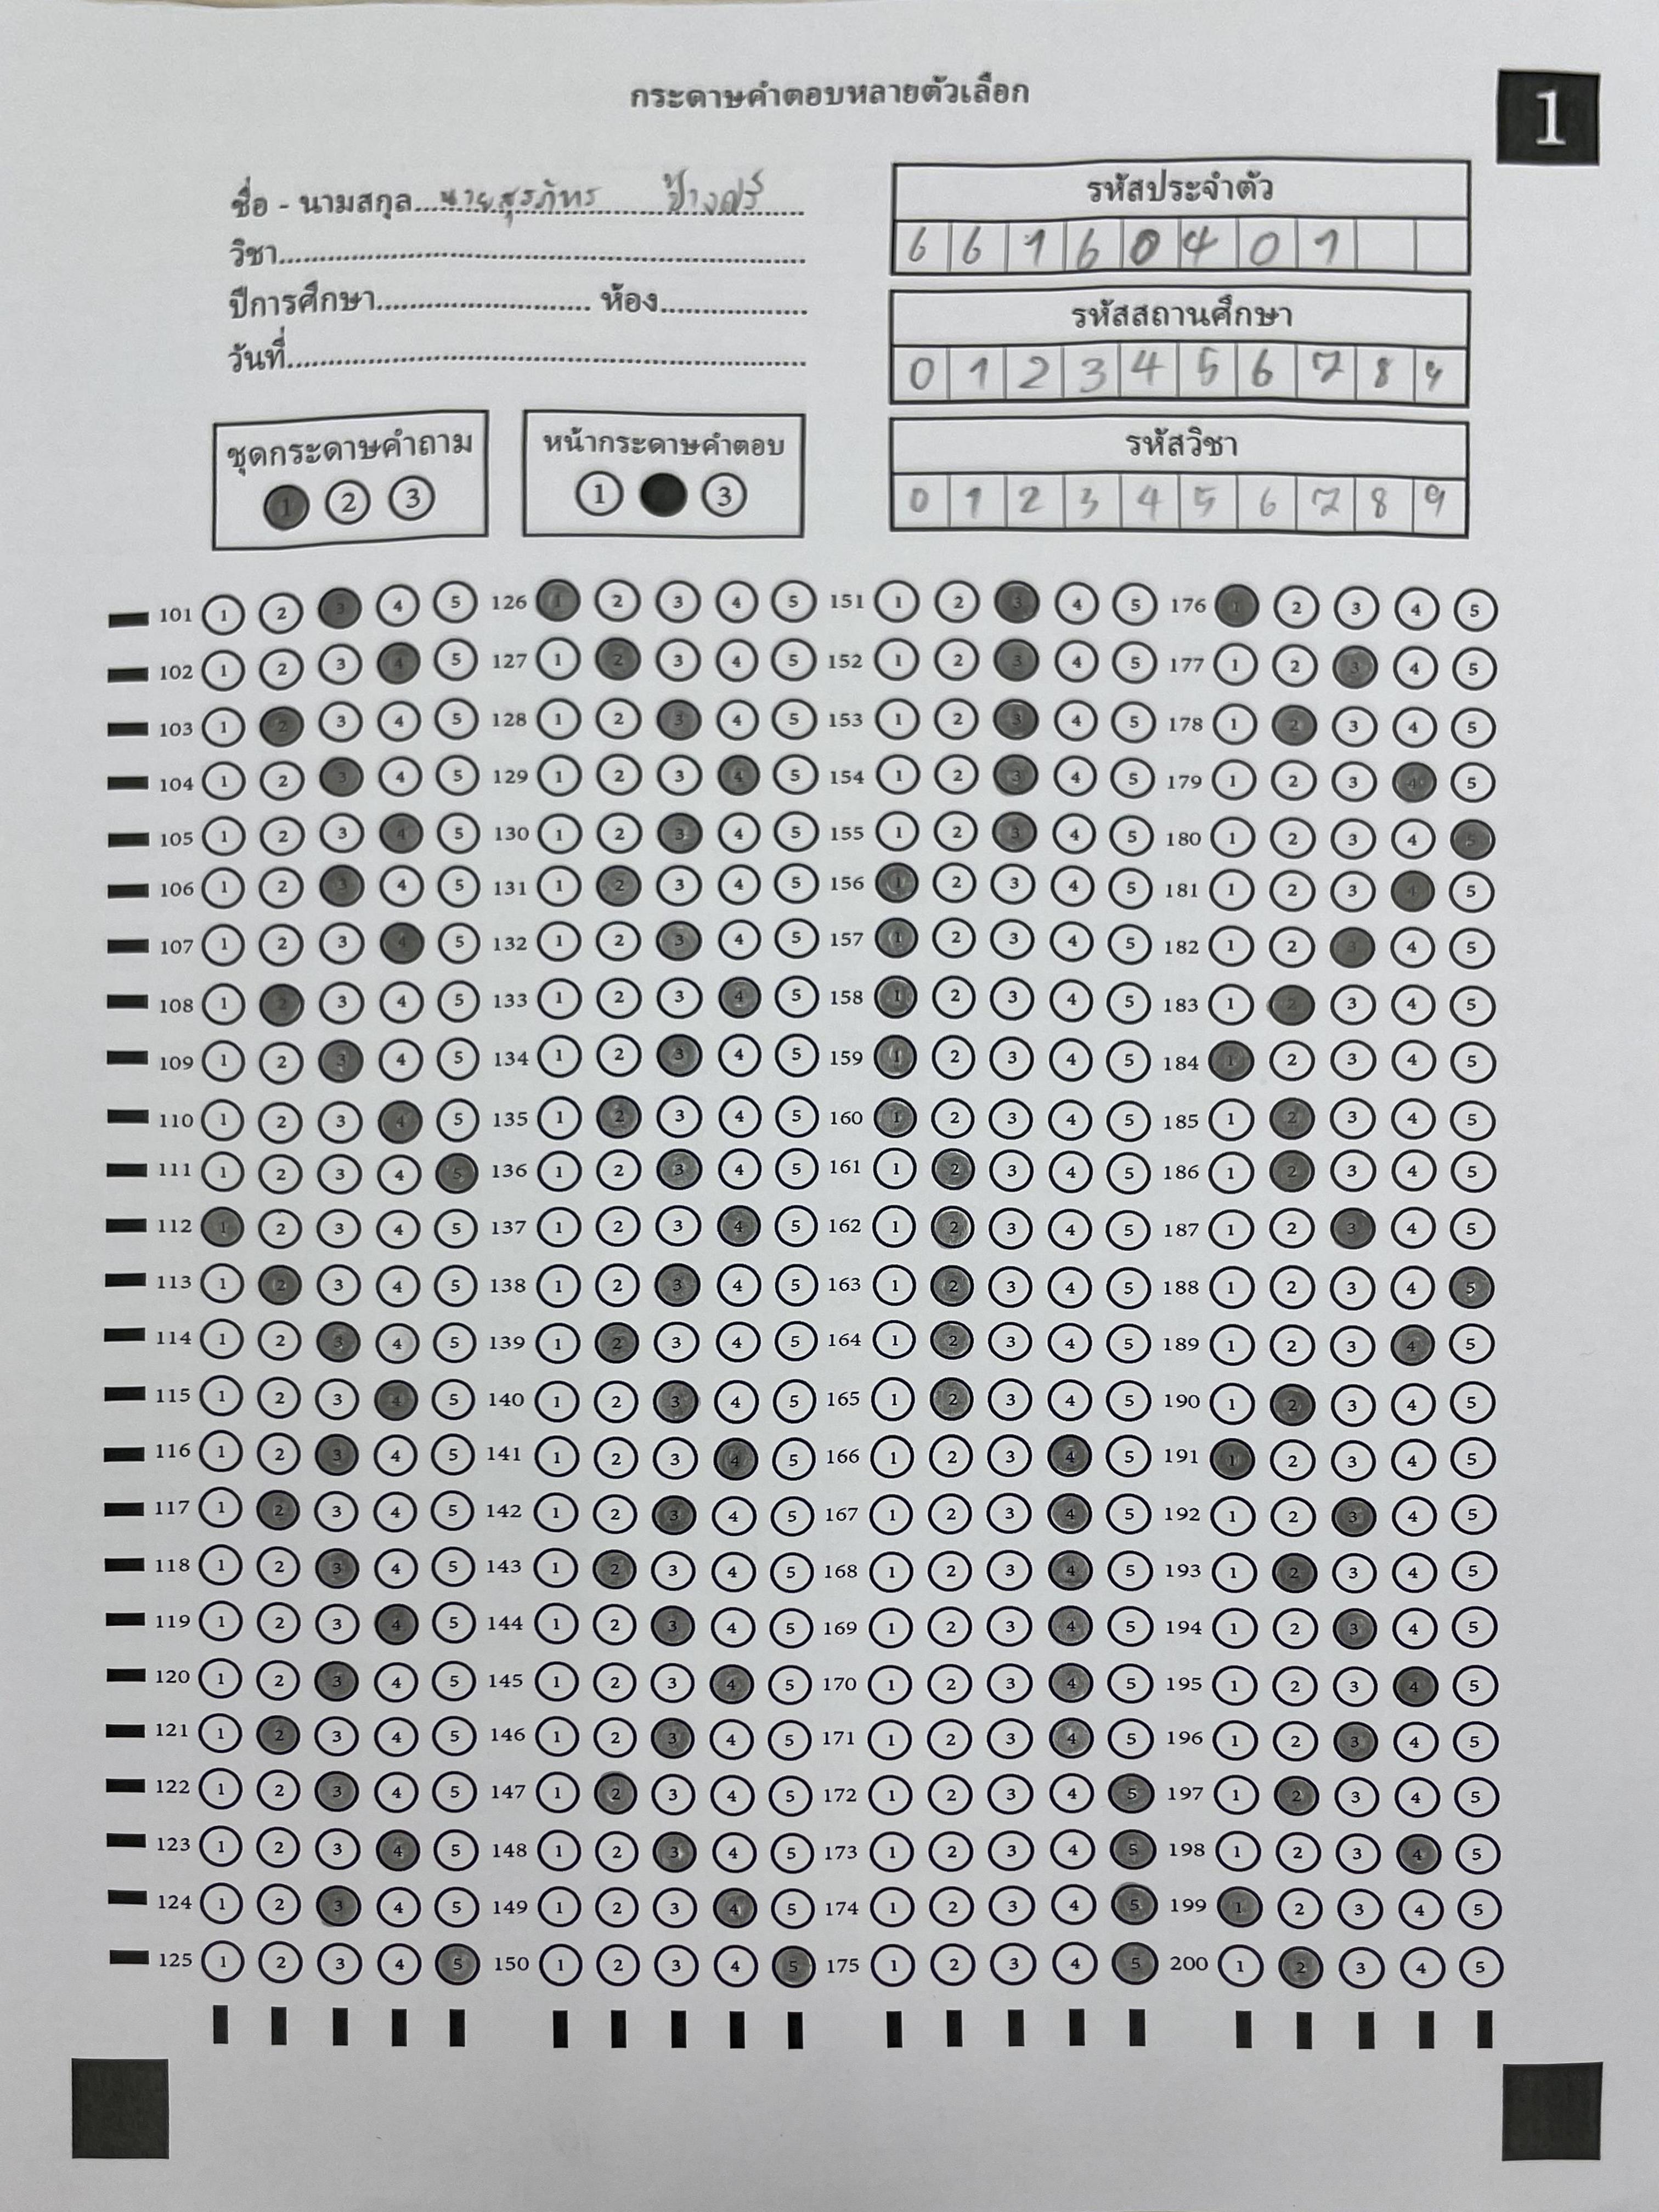 กระดาษคำตอบหลายตัวเลือก
1
ชื่อ - นามสกุล....นายสุรภัทร ช้างศรี
วิชา
ปีการศึกษา ห้อง
วันที่
รหัสประจำตัว
6 6 1 6 0 4 0 1
รหัสสถานศึกษา
0 1 2 3 4 5 6 7 8 9
รหัสวิชา
0 1 2 3 4 5 6 7 8 9
ชุดกระดาษคำถาม
1 2 3
หน้ากระดาษคำตอบ
1 3
101 1 2 3 4 5 126 1 2 3 4 5 151 1 2 3 4 5 176 1 2 3 4 5
102 1 2 3 4 5 127 1 2 3 4 5 152 1 2 3 4 5 177 1 2 3 4 5
103 1 2 3 4 5 128 1 2 3 4 5 153 1 2 3 4 5 178 1 2 3 4 5
104 1 2 3 4 5 129 1 2 3 4 5 154 1 2 3 4 5 179 1 2 3 4 5
105 1 2 3 4 5 130 1 2 3 4 5 155 1 2 3 4 5 180 1 2 3 4 5
106 1 2 3 4 5 131 1 2 3 4 5 156 1 2 3 4 5 181 1 2 3 4 5
107 1 2 3 4 5 132 1 2 3 4 5 157 1 2 3 4 5 182 1 2 3 4 5
108 1 2 3 4 5 133 1 2 3 4 5 158 1 2 3 4 5 183 1 2 3 4 5
109 1 2 3 4 5 134 1 2 3 4 5 159 1 2 3 4 5 184 1 2 3 4 5
110 1 2 3 4 5 135 1 2 3 4 5 160 1 2 3 4 5 185 1 2 3 4 5
111 1 2 3 4 5 136 1 2 3 4 5 161 1 2 3 4 5 186 1 2 3 4 5
112 1 2 3 4 5 137 1 2 3 4 5 162 1 2 3 4 5 187 1 2 3 4 5
113 1 2 3 4 5 138 1 2 3 4 5 163 1 2 3 4 5 188 1 2 3 4 5
114 1 2 3 4 5 139 1 2 3 4 5 164 1 2 3 4 5 189 1 2 3 4 5
115 1 2 3 4 5 140 1 2 3 4 5 165 1 2 3 4 5 190 1 2 3 4 5
116 1 2 3 4 5 141 1 2 3 4 5 166 1 2 3 4 5 191 1 2 3 4 5
117 1 2 3 4 5 142 1 2 3 4 5 167 1 2 3 4 5 192 1 2 3 4 5
118 1 2 3 4 5 143 1 2 3 4 5 168 1 2 3 4 5 193 1 2 3 4 5
119 1 2 3 4 5 144 1 2 3 4 5 169 1 2 3 4 5 194 1 2 3 4 5
120 1 2 3 4 5 145 1 2 3 4 5 170 1 2 3 4 5 195 1 2 3 4 5
121 1 2 3 4 5 146 1 2 3 4 5 171 1 2 3 4 5 196 1 2 3 4 5
122 1 2 3 4 5 147 1 2 3 4 5 172 1 2 3 4 5 197 1 2 3 4 5
123 1 2 3 4 5 148 1 2 3 4 5 173 1 2 3 4 5 198 1 2 3 4 5
124 1 2 3 4 5 149 1 2 3 4 5 174 1 2 3 4 5 199 1 2 3 4 5
125 1 2 3 4 5 150 1 2 3 4 5 175 1 2 3 4 5 200 1 2 3 4 5